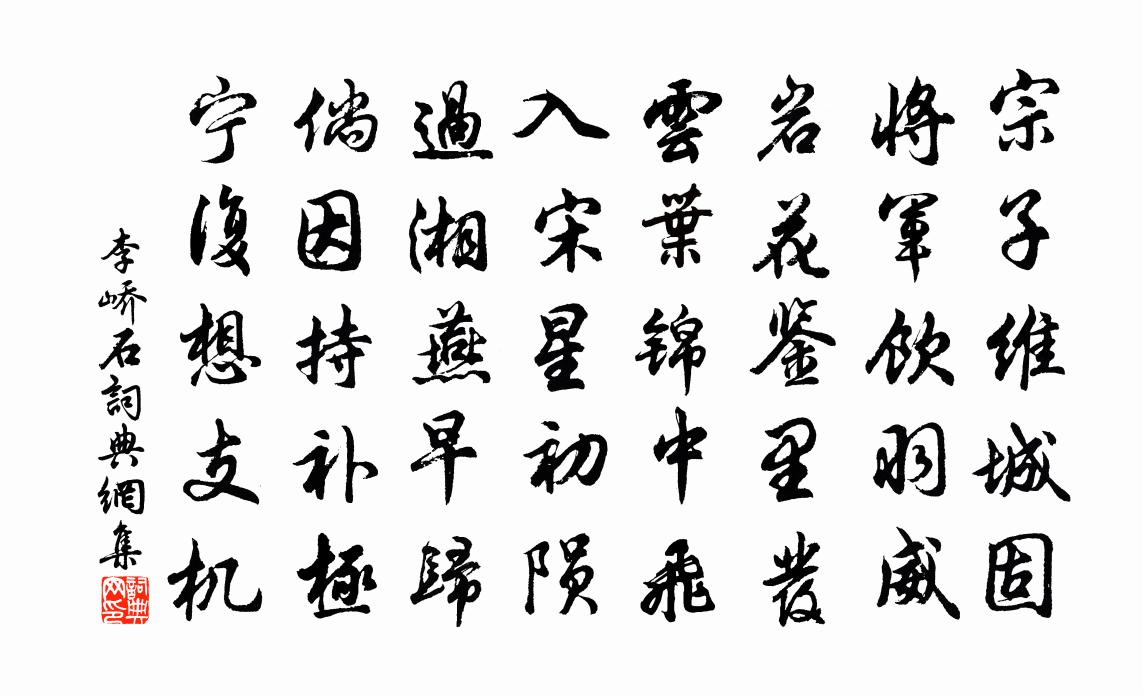 宗子维城固
将軍飲羽威
岩花鉴里發
雲葉锦中飛
入宋星初陨
過湘燕早歸
倘因持补極
宁復想支机
李峤石詞典網集
詞典網印